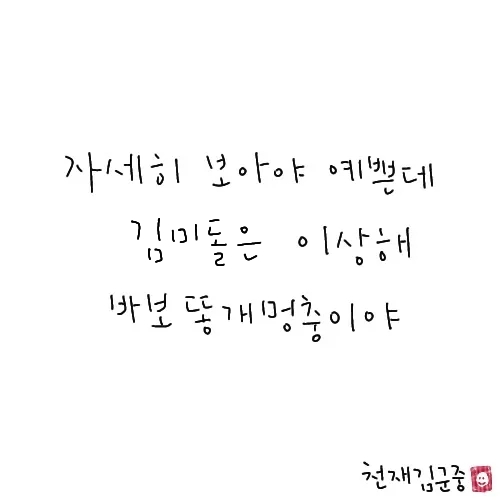 자세히 보아야 예쁜데
김미돌은 이상해
바보똥개멍충이야
천재김군중